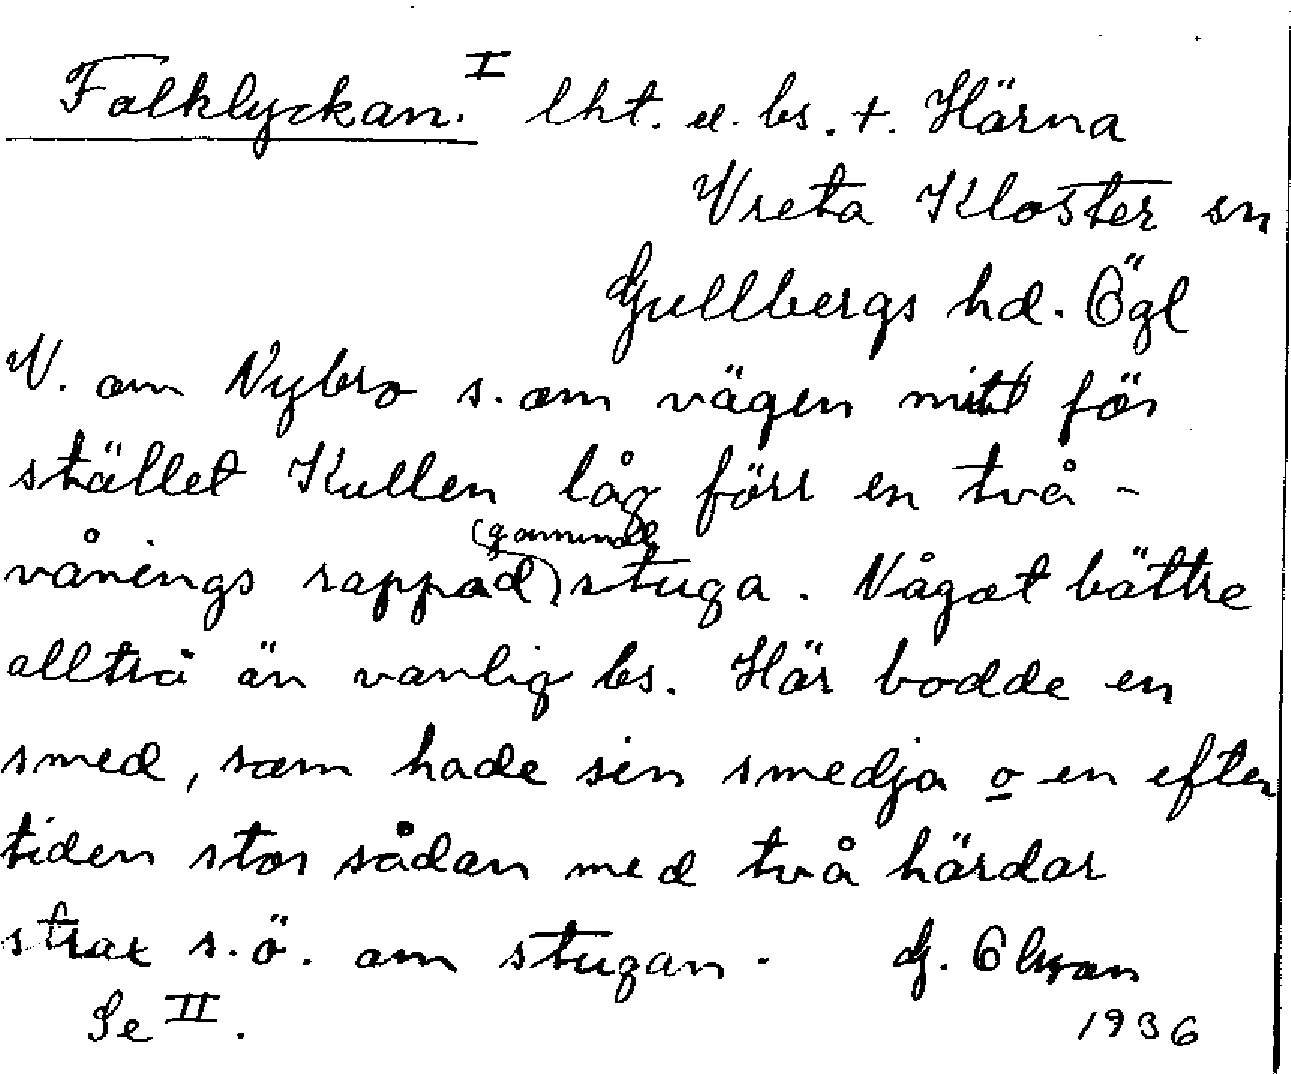 Falklyckan. I lht. el. bs. t. Härna
Vreta Kloster sn
Gullbergs hd. Ögl
V. om Nybro s. om vägen mitt för
stället Kullen låg förr en två-
vånings rappad (gammal) stuga. Något bättre
alltså än vanlig bs. Här bodde en
smed, som hade sin smedja o en efter
tiden stor sådan med två härdar
strax s.ö. om stugan. G.
Se II. 1936